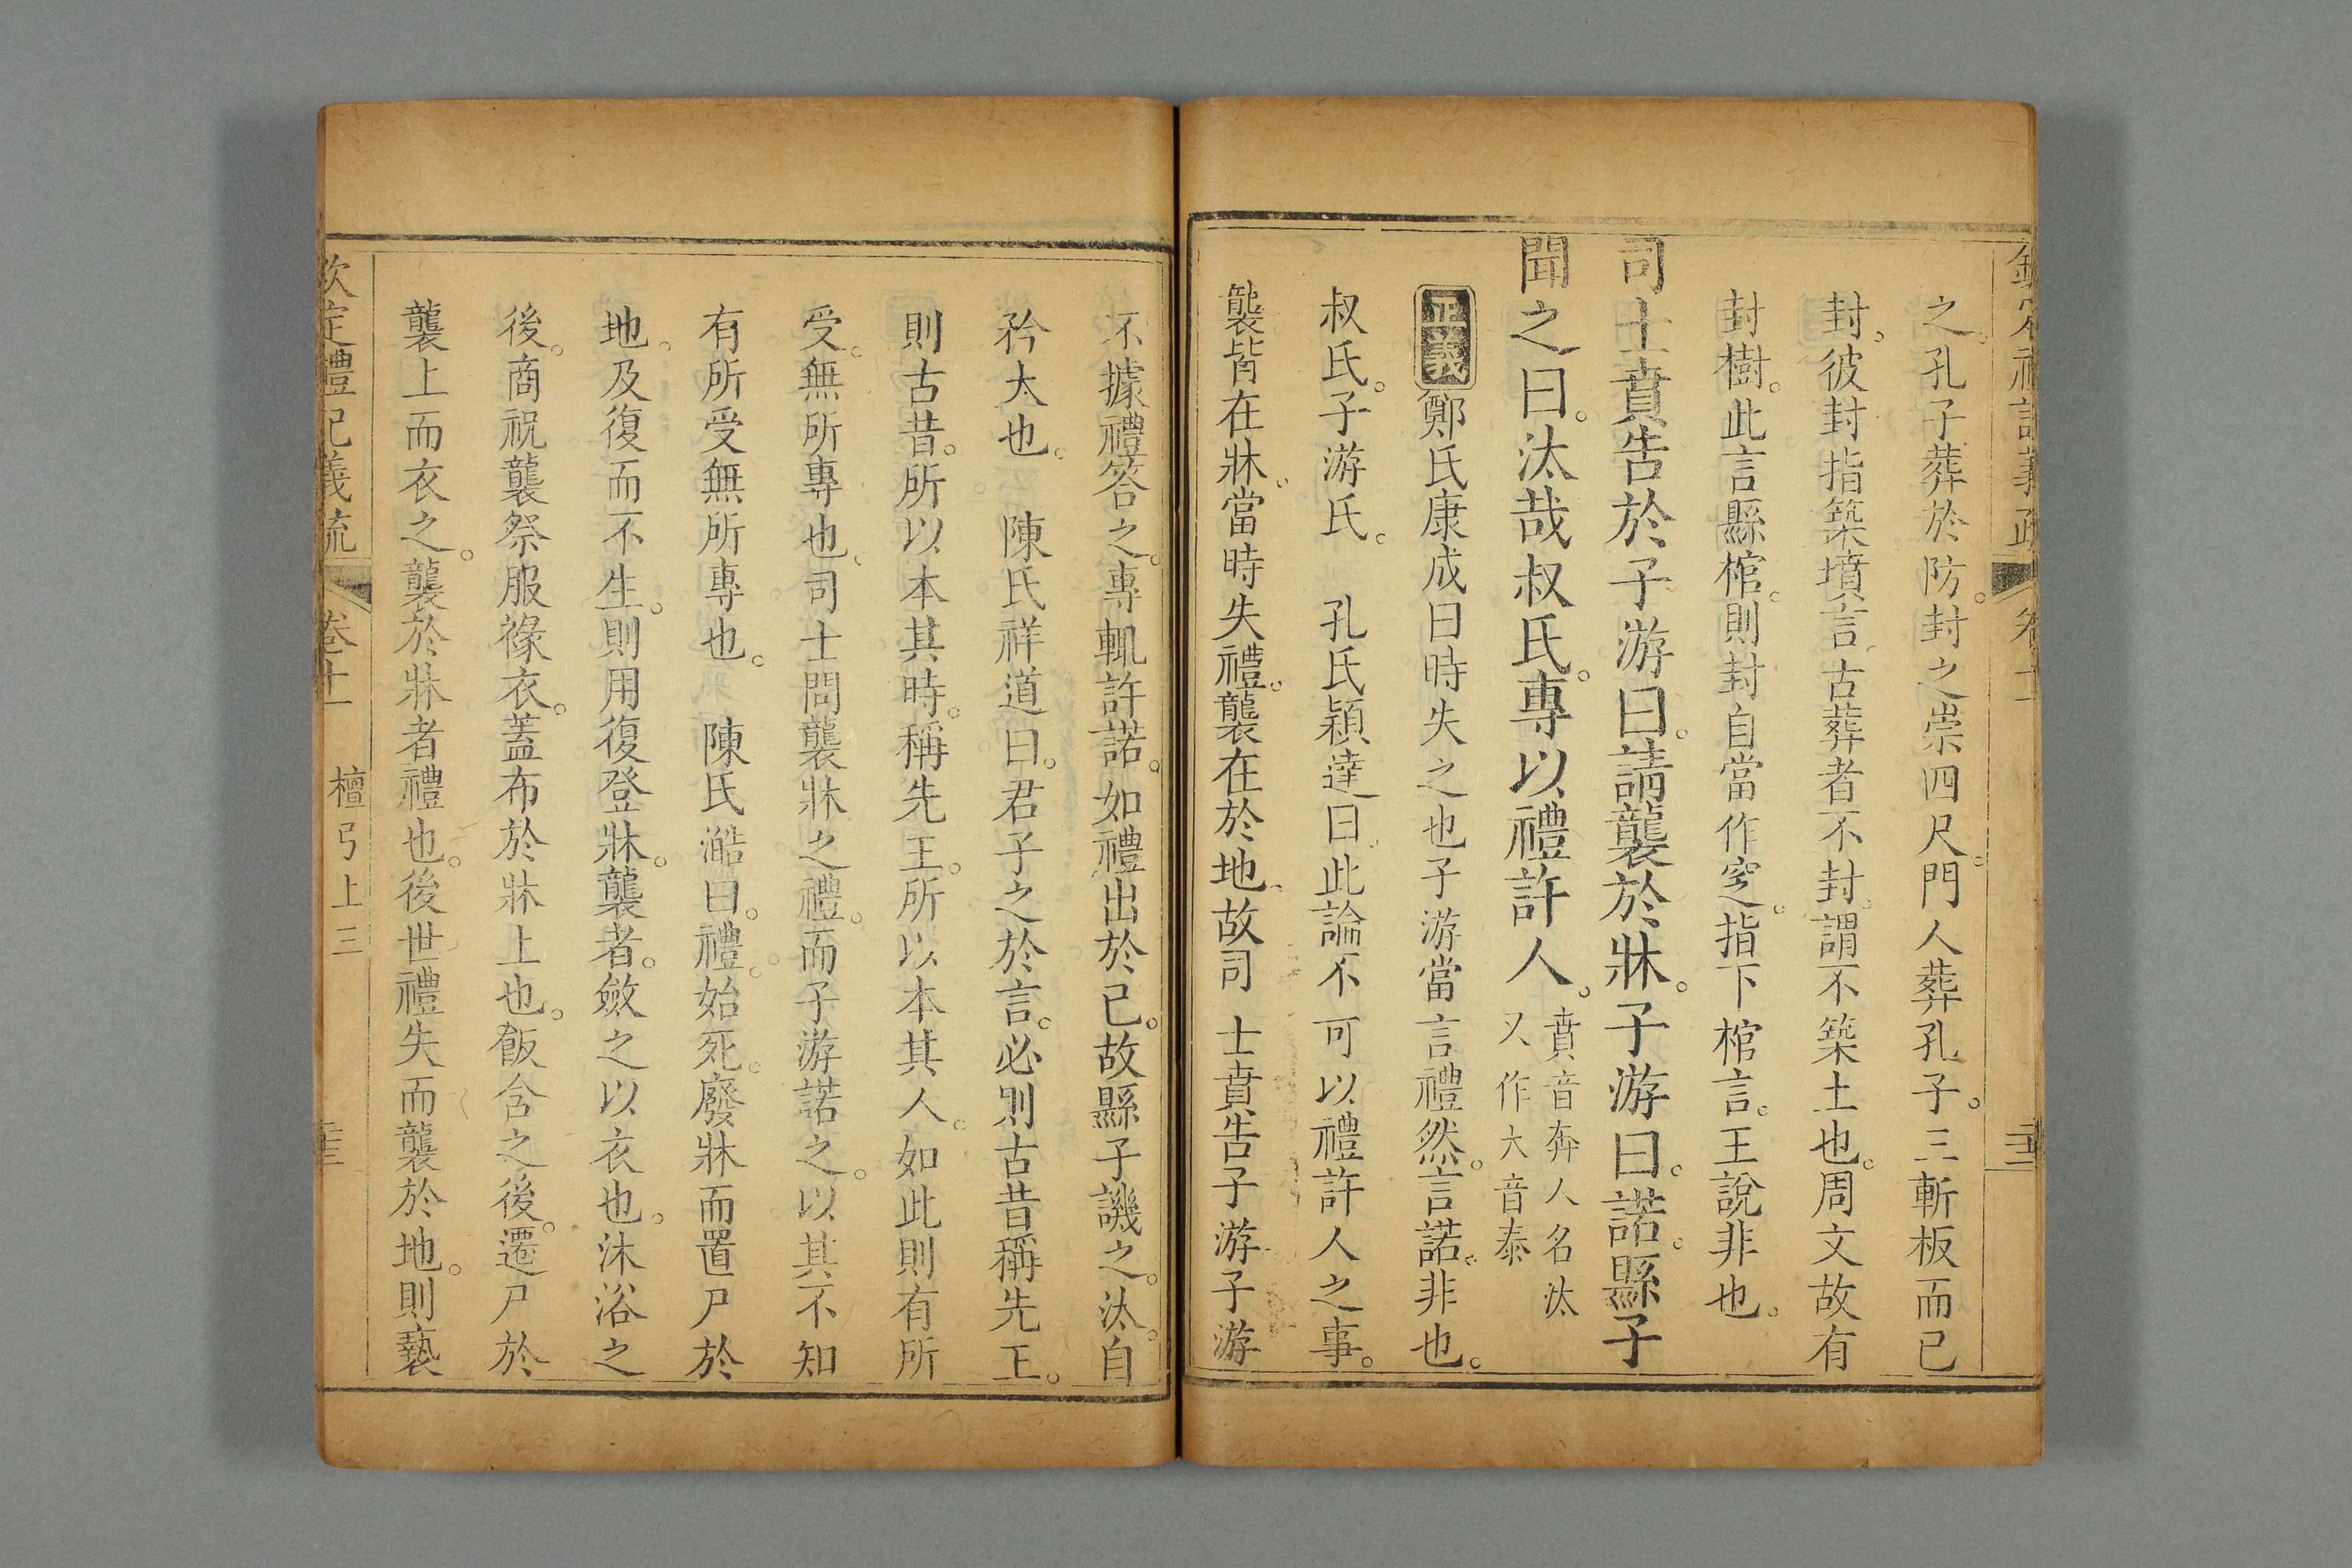 之。孔子葬於防。封之崇四尺。門人葬孔子。三斬板而已
封。彼封指築墳言。古葬者不封。謂不築土也。周文故有
封樹。此言縣棺。則封自當作窆。指下棺言。王說非也。
司士賁告於子游曰。請襲於牀。子游曰。諾。縣子
聞之曰。汰哉叔氏。專以禮許人。賁音奔人名汰
又作大音泰
正義 鄭氏康成曰時失之也子游當言禮然。言諾。非也。
叔氏。子游氏。 孔氏穎達曰。此論不可以禮許人之事。
襲皆在牀。當時失禮。襲在於地。故司士賁告子游子游
不據禮答之。專輒許諾。如禮出於己。故縣子譏之。汰。自
矜大也。 陳氏祥道曰。君子之於言。必則古昔稱先王。
則古昔。所以本其時。稱先王。所以本其人。如此則有所
受。無所專也。司士問襲牀之禮。而子游諾之。以其不知
有所受無所專也。 陳氏澔曰。禮。始死。廢牀而置尸於
地。及復而不生。則用復登牀。襲者。斂之以衣也。沐浴之
後。商祝襲祭服褖衣。蓋布於牀上也。飯含之後。遷尸於
襲上而衣之。襲於牀者禮也。後世禮失而襲於地。則褻
欽定禮記義疏 卷十一 檀弓上三